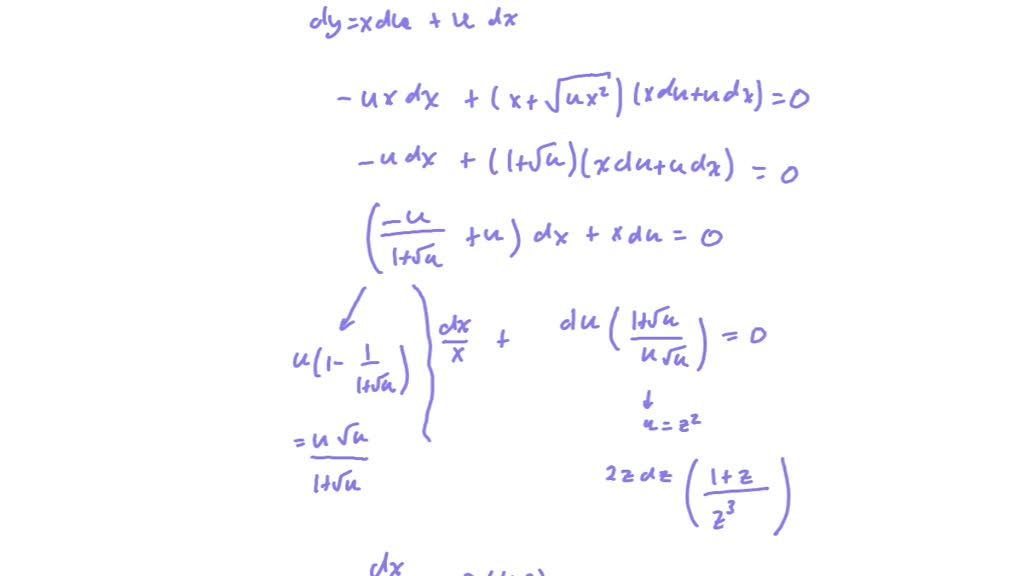 dy = xdu + u dx
- ux dx + (x + √(ux²)) (xdu+udx) = 0
- u dx + (1+√u)(xdu+udx) = 0
(-u/(1+√u) + u) dx + xdu = 0
dx/x + du ((1+√u)/(u√u)) = 0
u(1 - 1/(1+√u))
↓
u = z²
= u√u/(1+√u)
2z dz ((1+z)/z³)
dx